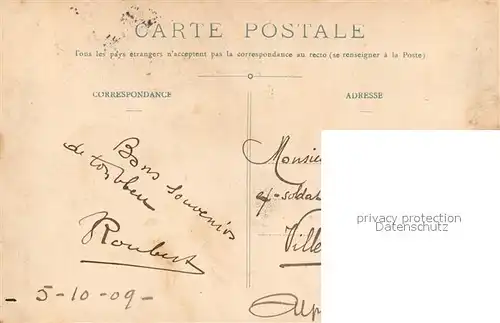 CARTE POSTALE
Tous les pays étrangers n'acceptent pas la correspondance au recto (se renseigner à la Poste)
CORRESPONDANCE
ADRESSE
Bons souvenirs
de
Roubert
5-10-09-
Monsie
soldat
Ville
Alp
privacy protection
Datenschutz